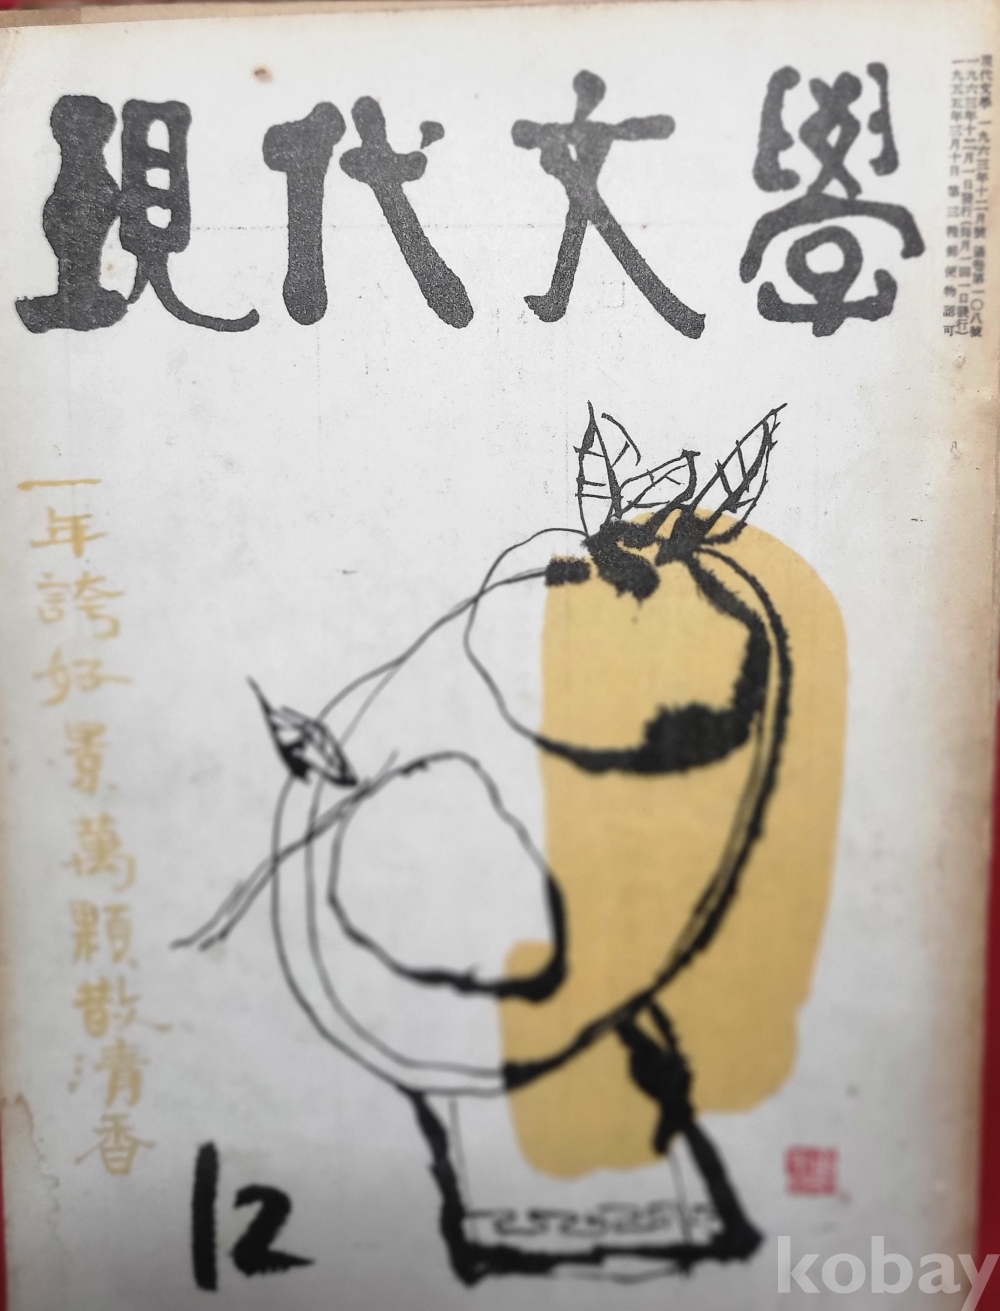 現代文學
現代文學 一九六三年十二月號 通卷第一〇八號
一九六三年十二月一日發行(每月一回一日發行)
一九五五年三月十日 第三種郵便物認可
一年誇好景萬顆散淸香
12
kobay